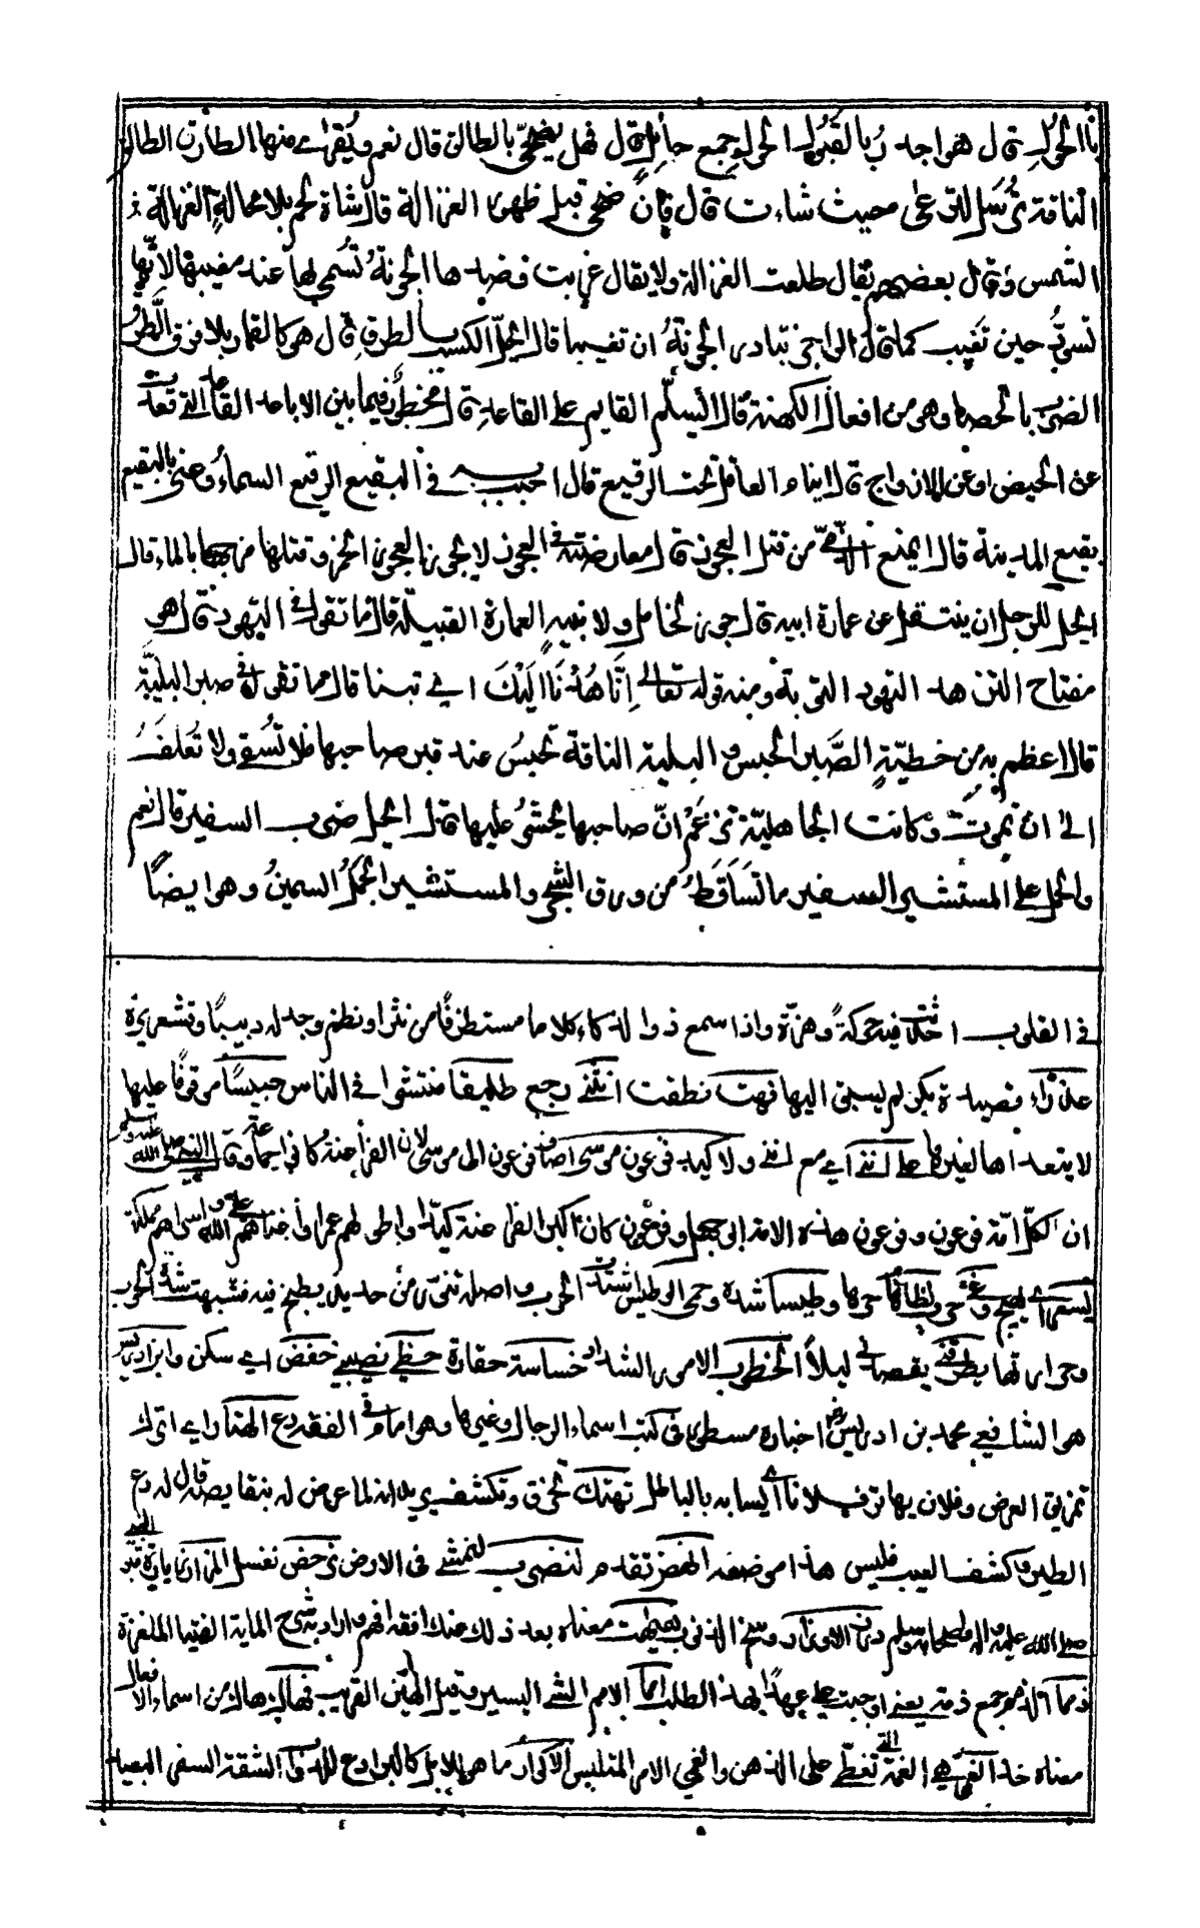 بالحول قال هو اجدر بالقبول الحول جمع حائل قال فهل يضحى بالطالق قال نعم ويقرى منها الطارق الطالق
الناقة ترسل للترعى حيث شاءت قال فان ضحى قبل ظهور الغزالة قال شاة لحم بلا محالة الغزالة
الشمس وقال بعضهم يقال طلعت الغزالة ولا يقال غربت فضدها الجونة تسمى بها عند مغيبها لانها
تسود حين تغيب كما قال الراجز تبادر الجونة ان تغيبا قال ايحل الكسب بالطرق قال هو كالقمار بلا فرق الطرق
الضرب بالحصى وهو من افعال الكهنة قال ايسلم القايم على القاعد قال محظور فيما بين الاباعد القاعد التي قعدت
عن الحيض او عن الازواج قال اينام العاقل تحت الرقيع قال احبب به في البقيع الرقيع السماء وعنى بالبقيع
بقيع المدينة قال ايمنع الذمي من قتل العجوز قال معارضته في العجوز لا يجوز العجوز الخمر وقتلها مزجها بالماء قال
ايحل للرجل ان ينتقل عن عمارة ابيه قال جوز لخامل ولا نبيه العمارة القبيلة قال ما تقول في التهود قال هو
مفتاح التزهد التهود التوبة ومنه قوله تعالى إنا هدنا اليك اي تبنا قال ما تقول في صبر البلية
قال اعظم به من خطيّةٍ الصّبر الحبس والبلية الناقة تحبس عند قبر صاحبها فلا تسقى ولا تعلف
الى ان تموت وكانت الجاهلية تزعم انّ صاحبها يحشر عليها قال ايحل ضرب السفير قال نعم
والحمل على المستشير السفير ما تساقط من ورق الشجر والمستشير الجمل السمين وهو ايضاً
في القلوب احدثت فيه حركة وهزة واذا سمع ذو الذكاء كلاما مستطرفا من نثر او نظم وجد له دبيبا وقشعريرة
على قصيدة بكر لم يسبق اليها فهت نطقت انثنى رجع طليقا منتشرا في الناس حبيسا موقوفا عليها
لا يتعداها لغيرها على انني اي مع انني ولا كيد فرعون موسى اضاف فرعون الى موسى لان الفراعنة كانوا جماعة وقال النبي صلى الله عليه وسلم
ان لكل امة فرعون وفرعون هذه الامة ابو جهل وفرعون كان اكبر الفراعنة كبرا واطولهم عمرا
يسعر اي يهيج لظاها حرها وطيسا شدة وحمى الوطيس اشتدت الحرب واصله تنور من حديد يطبخ فيه فشبهت شدة الحرب
وحرارتها يطرقني يقصدني ليلاً الخطوب الامور الشداد خساسة حقارة حظي نصيبي خفض اي سكن وابن ادريس
هو الشافعي محمد بن ادريس اخباره مسطورة في كتب اسماء الرجال وغيرها وهو امام في الفقه دع الهتار اي اترك
تمزيق العرض وفلان يهاتر فلانا اي يسابه بالباطل تهتك تخرق وتكشف يريد انه لما عرض له بنقايصه قال له دع
الطير وكشف العيب فليس هذا موضعه انهض تقدم لنضرب لنمشي في الارض نرحض نغسل المزار زيارة قبر النبي
صلى الله عليه وسلم درن الاوزار وسخ الذنوب معناه بعد ذلك عنك افقه افهم واراد بشرح الماية الفتيا الملغزة
ذمما الذمم جمع ذمة يعني اوجبت علي عهدا بهذا الطلب امما الامم الشيء اليسير وقيل الهين القريب فهاك من اسماء الافعال
معناه خذ الغمي هي الغمة التي تغطي على الذهن والغمى الامر الملتبس الاكوار ما هو للابل كالبرادع للدواب الشقة السفر البعيد